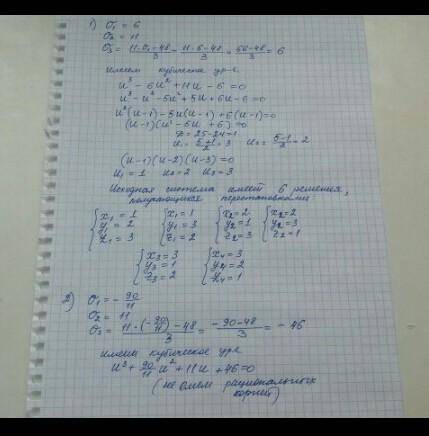 1) σ₁ = 6
σ₂ = 11
σ₃ = (11·σ₁-48)/3 = (11·6-48)/3 = (66-48)/3 = 6
имеем кубическое ур-е
u³ - 6u² + 11u - 6 = 0
u³ - u² - 5u² + 5u + 6u - 6 = 0
u²(u-1) - 5u(u-1) + 6(u-1) = 0
(u-1)(u² - 5u + 6) = 0
D = 25-24=1
u₁ = (5+1)/2 = 3 u₂ = (5-1)/2 = 2
(u-1)(u-2)(u-3)=0
u₁ = 1 u₂ = 2 u₃ = 3
Исходная система имеет 6 решения,
получающихся перестановками
{x₁ = 1 {x₁ = 1 {x₂ = 2 {x₂ = 2
{y₁ = 2 {y₁ = 3 {y₂ = 1 {y₂ = 3
{z₁ = 3 {z₁ = 2 {z₂ = 3 {z₂ = 1
{x₃ = 3 {x₄ = 3
{y₃ = 1 {y₄ = 2
{z₃ = 2 {z₄ = 1
2) σ₁ = - 90/11
σ₂ = 11
σ₃ = (11·(-90/11) - 48)/3 = (-90-48)/3 = - 46
имеем кубическое ур-е
u³ + 90/11 u² + 11u + 46 = 0
(не имеем рациональных
корней)